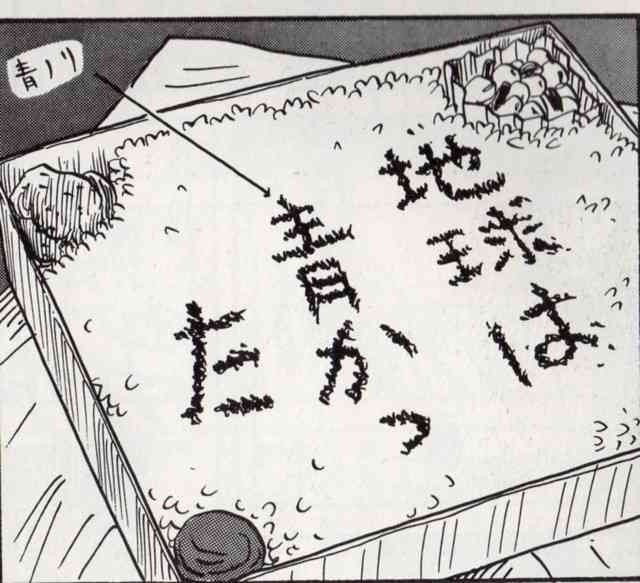 青ノリ
地球は
青かっ
た